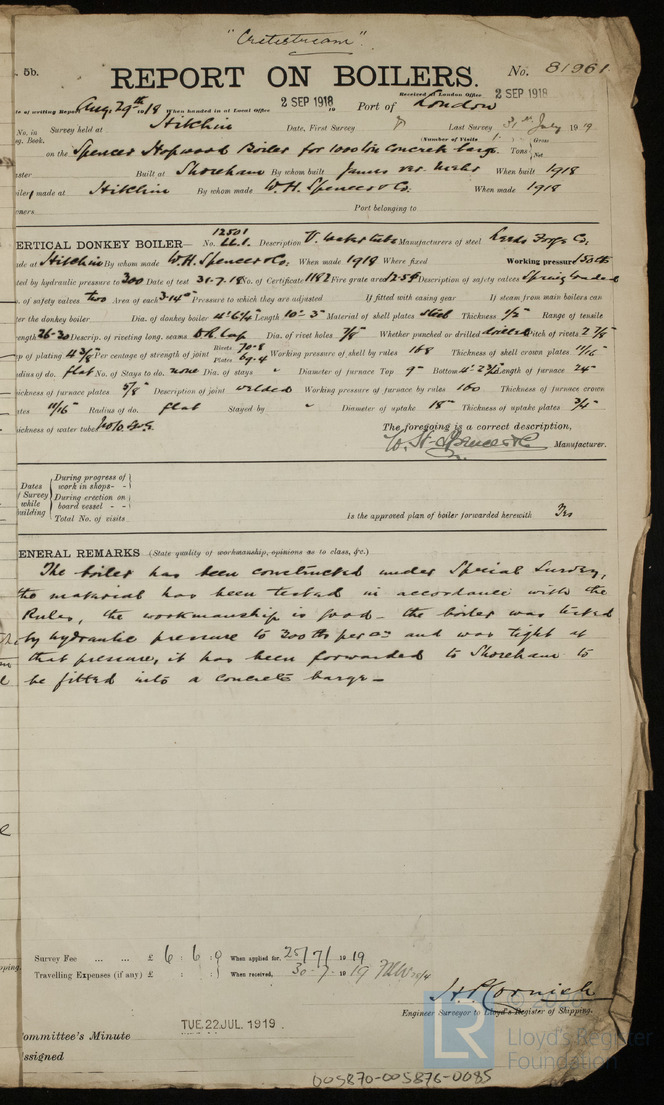 "Cretestream".
5b.
REPORT ON BOILERS.
No. 81961
Received at London Office 2 SEP 1918
of writing Report Aug. 29th 1918 When handed in at Local Office 2 SEP 1918 Port of London
No. in Survey held at Hitchin Date, First Survey Last Survey 31st July 1919
Book. (Number of Visits
on the Spencer Hopwood Boiler for 1000 ton concrete barge Tons Gross Net
Built at Shoreham By whom built James When built 1918
made at Hitchin By whom made W. H. Spencer & Co. When made 1918
Port belonging to
ERTICAL DONKEY BOILER— No. 12501 Description V. water tube Manufacturers of steel Leeds Forge Co.
at Hitchin By whom made W. H. Spencer & Co. When made 1918 Where fixed Working pressure 150 lbs
ted by hydraulic pressure to 300 Date of test 31.7.18 No. of Certificate 1182 Fire grate area 12.56 Description of safety valves Spring loaded
of safety valves two Area of each 3.14" Pressure to which they are adjusted If fitted with casing gear If steam from main boilers can
ter the donkey boiler Dia. of donkey boiler 4'.6¼" Length 10'-3" Material of shell plates Steel Thickness ½" Range of tensile
ength 26-30 Descrip. of riveting long. seams D.R. Lap Dia. of rivet holes 7/8" Whether punched or drilled drilled Pitch of rivets 2 7/8"
of plating 4 3/8" Per centage of strength of joint Rivets 70.8 Plates 69.4 Working pressure of shell by rules 168 Thickness of shell crown plates 11/16"
dius of do. flat No. of Stays to do. none Dia. of stays " Diameter of furnace Top 9" Bottom 4'-2¾" Length of furnace 24"
ickness of furnace plates 5/8" Description of joint welded Working pressure of furnace by rules 160 Thickness of furnace crown
ates 11/16" Radius of do. flat Stayed by " Diameter of uptake 18" Thickness of uptake plates ¾"
ickness of water tubes
The foregoing is a correct description,
W. H. Spencer & Co. Manufacturer.
Dates of Survey while building
During progress of work in shops - -
During erection on board vessel - -
Total No. of visits
Is the approved plan of boiler forwarded herewith Yes
ENERAL REMARKS (State quality of workmanship, opinions as to class, &c.)
The boiler has been constructed under Special Survey,
the material has been tested in accordance with the
Rules, the workmanship is good - the boiler was tested
by hydraulic pressure to 300 lbs per □" and was tight at
that pressure, it has been forwarded to Shoreham to
be fitted into a concrete barge -
Survey Fee ... ... £ 6 : 6 : 0 When applied for, 25/7/1919
Travelling Expenses (if any) £ : : When received, 30.7.1919
H P Cornish
Engineer Surveyor to Lloyd's Register of Shipping.
TUE. 22 JUL. 1919
ommittee's Minute
ssigned
LR
Lloyd's Register
Foundation
005870-005876-0085